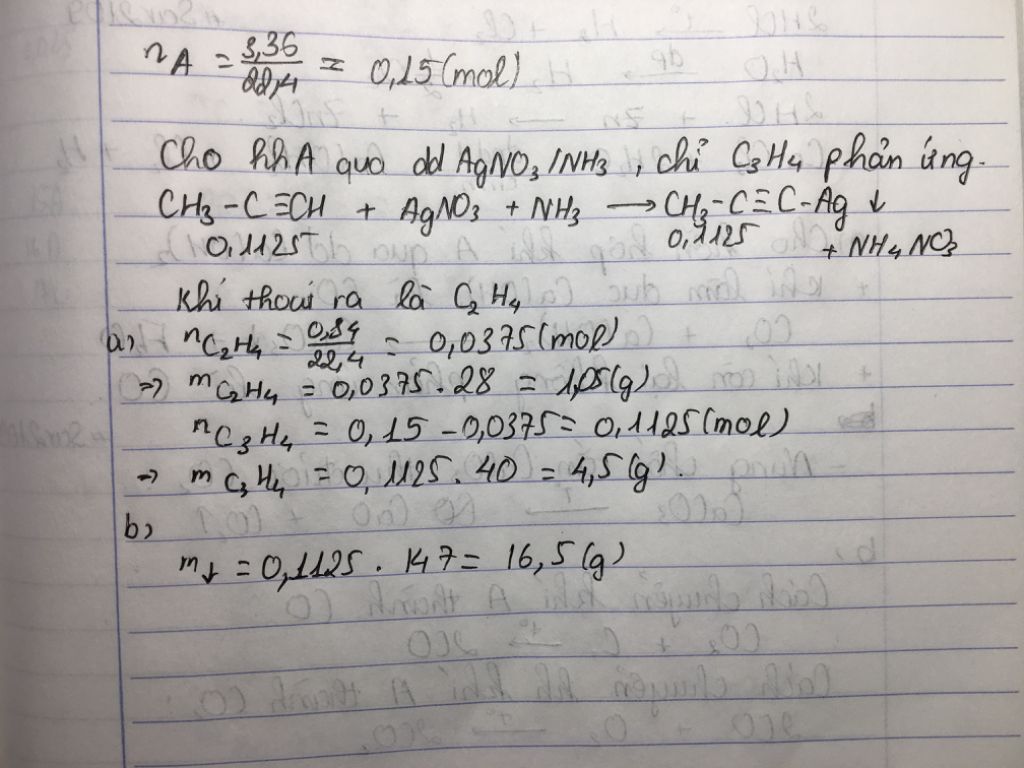 nA = 3,36/22,4 = 0,15 (mol)
Cho hh A qua dd AgNO3/NH3, chỉ C3H4 phản ứng.
CH3-C≡CH + AgNO3 + NH3 → CH3-C≡C-Ag ↓
0,1125 0,1125 + NH4NO3
Khí thoát ra là C2H4
a) nC2H4 = 0,84/22,4 = 0,0375 (mol)
=> mC2H4 = 0,0375 . 28 = 1,05 (g)
nC3H4 = 0,15 - 0,0375 = 0,1125 (mol)
=> mC3H4 = 0,1125 . 40 = 4,5 (g).
b)
m↓ = 0,1125 . 147 = 16,5 (g)